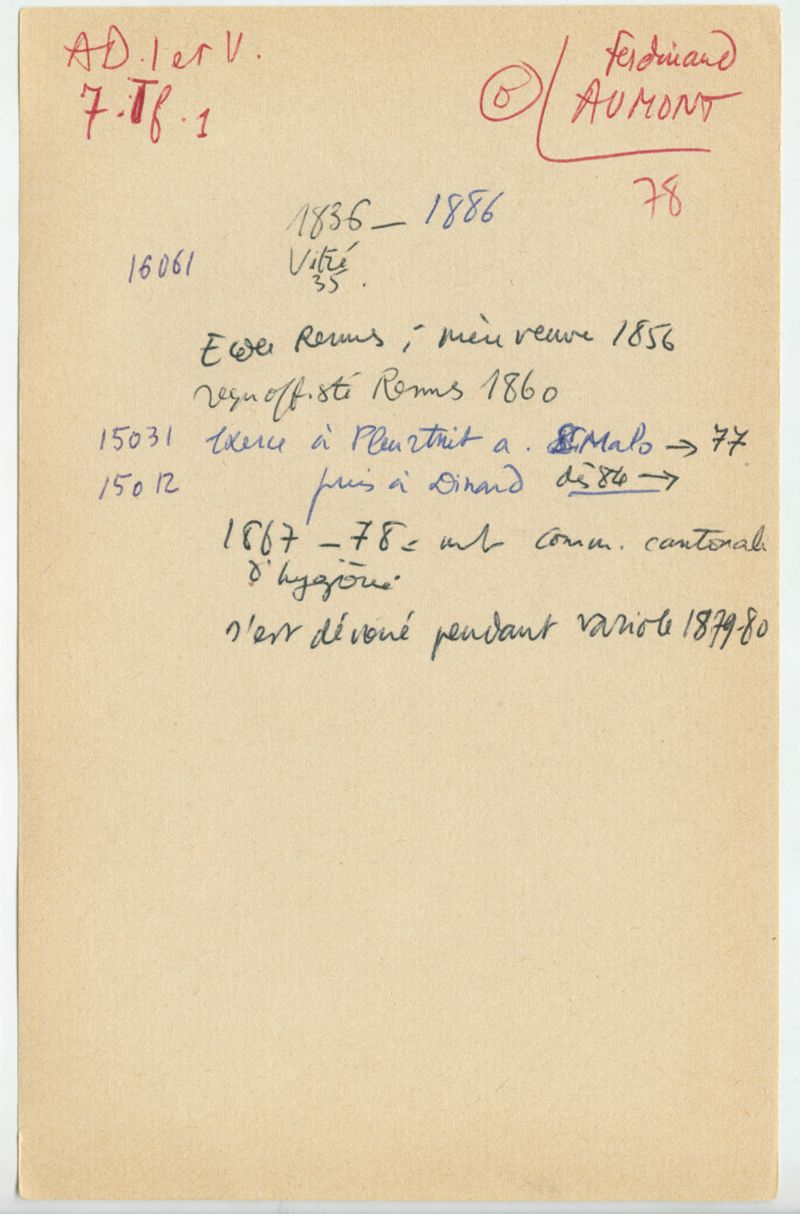 AD. I et V.
7.Tf.1
Ferdinand
AUMONT
78
1836 — 1886
16061
Vitré
35.
Ecole Rennes ; mère veuve 1856
reçu off. sté Rennes 1860
15031 Exerce à Pleurtuit a. St Malo → 77
15012 puis à Dinard dès 84 →
1867 – 78 = mb comm. cantonale
d'hygiène
s'est dévoué pendant variole 1879-80